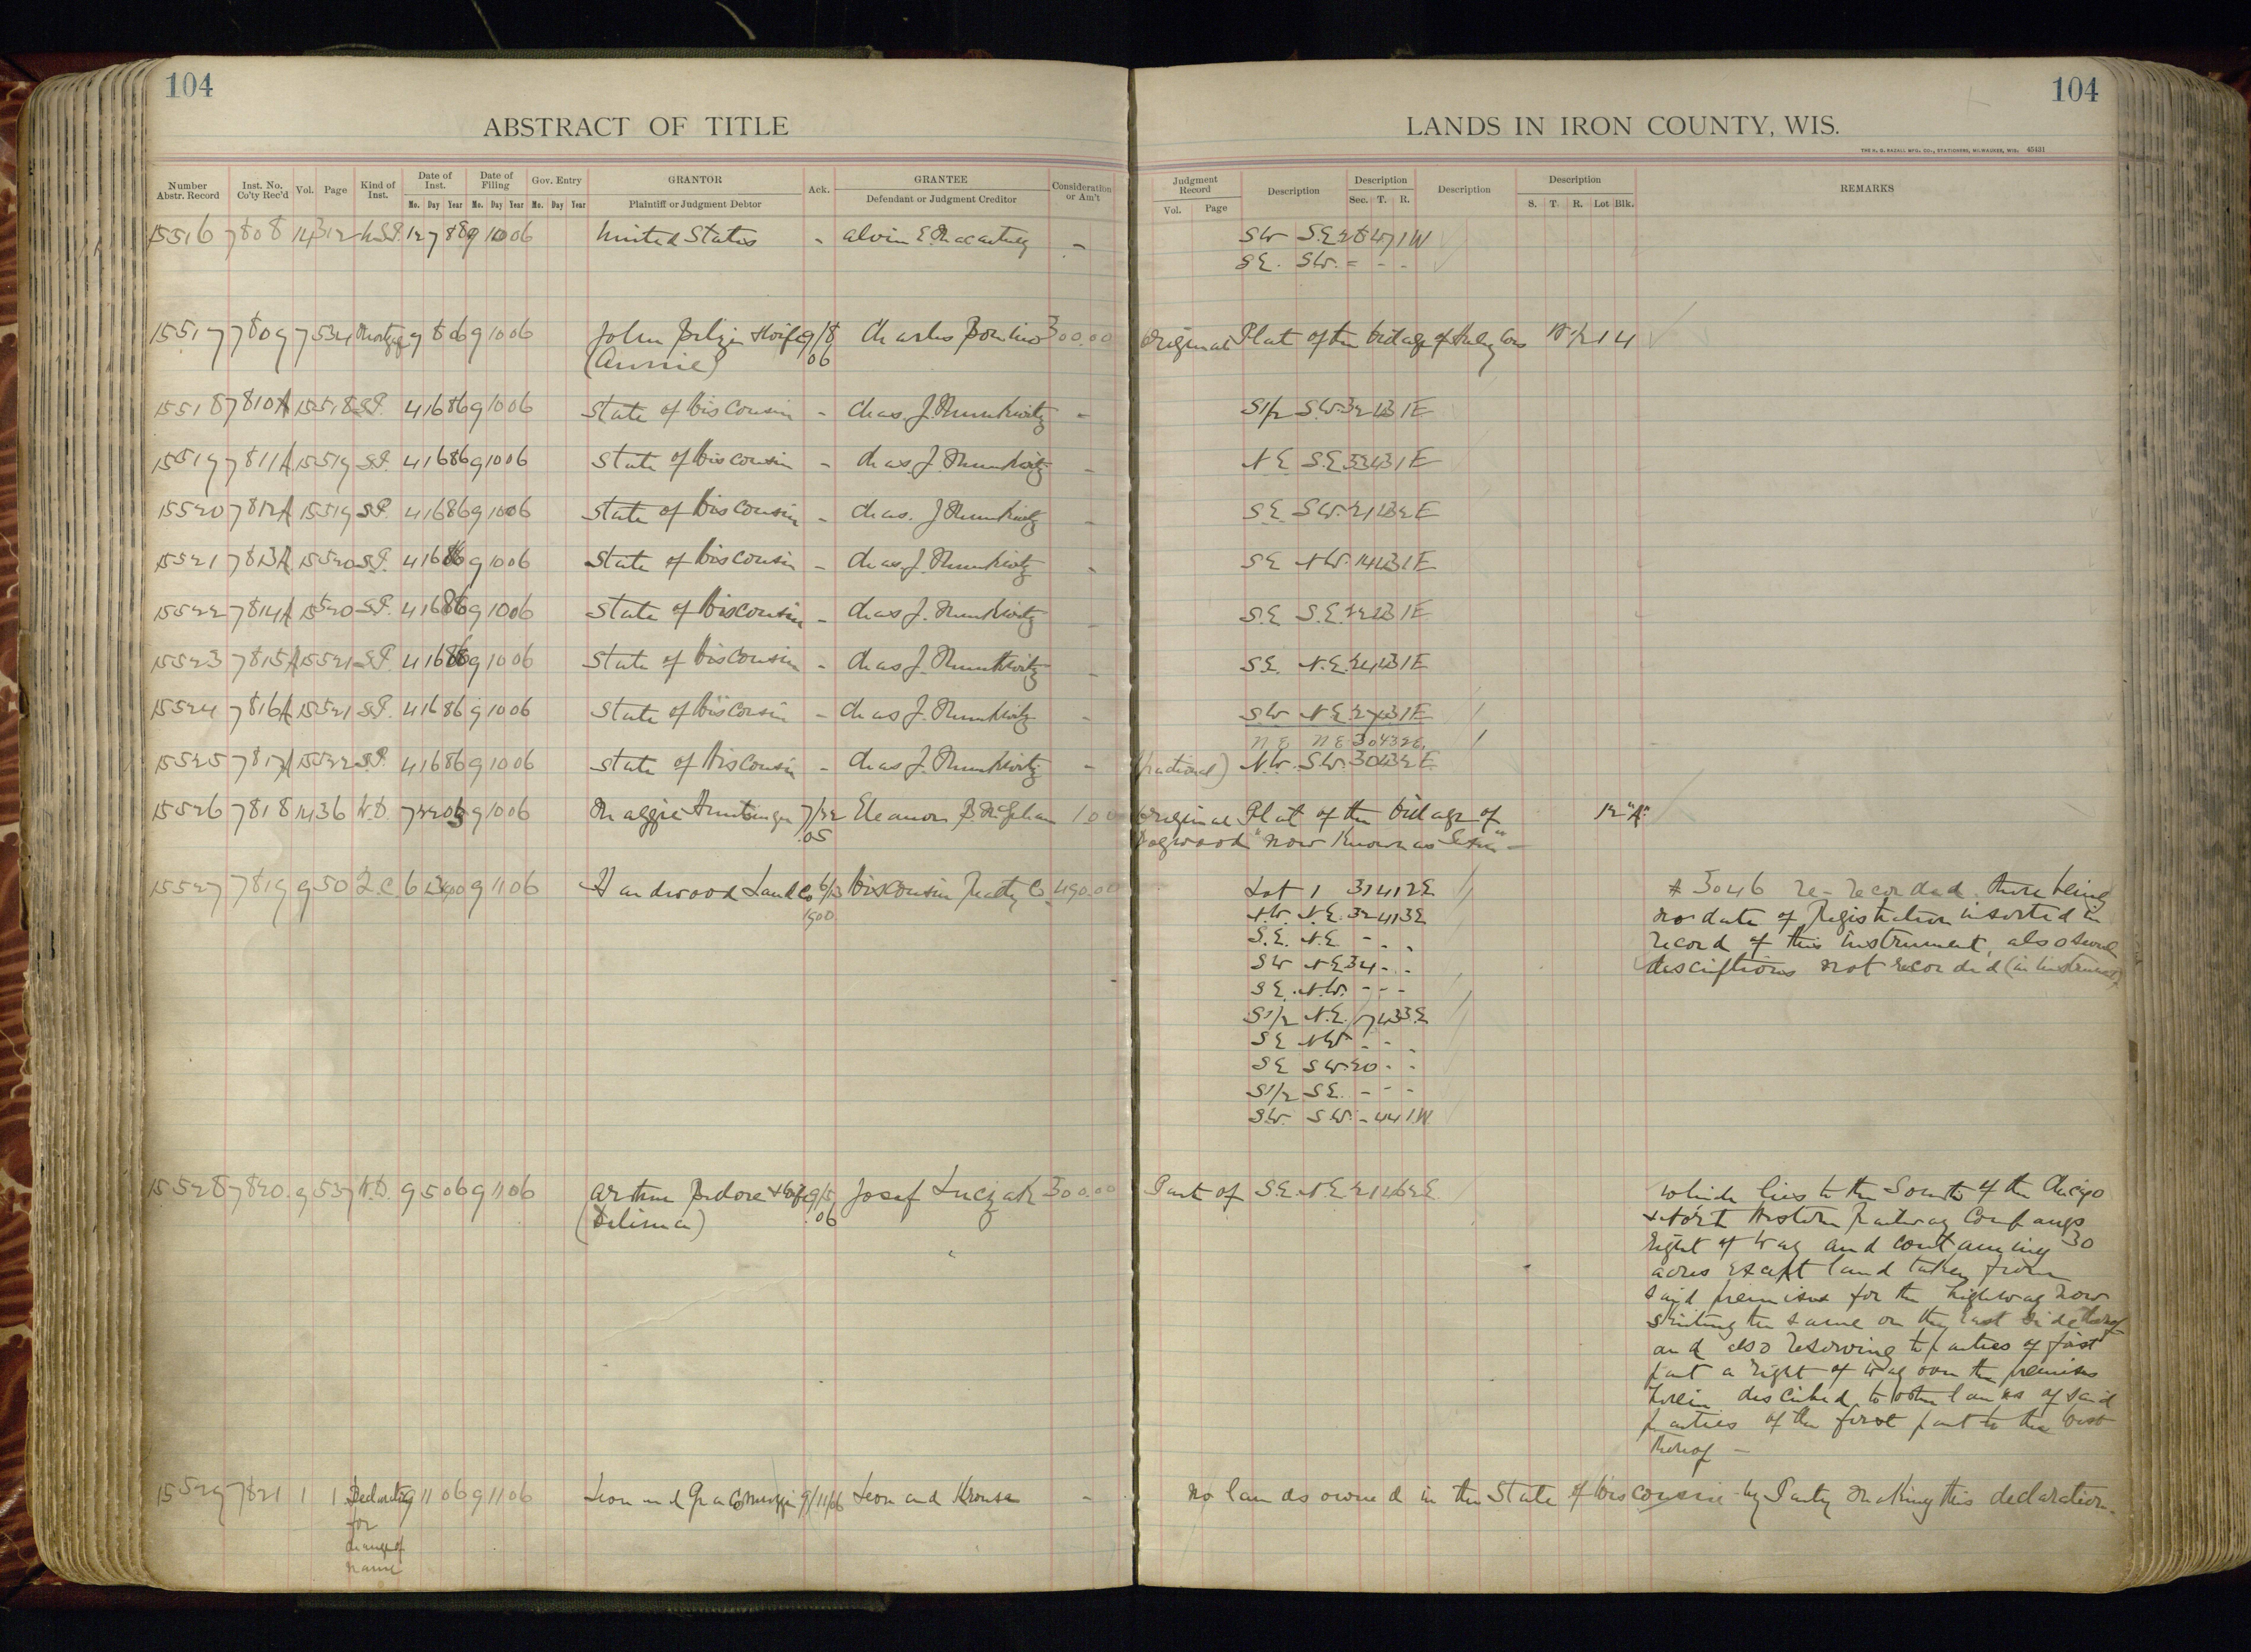 104
104
ABSTRACT OF TITLE
LANDS IN IRON COUNTY, WIS.
THE H. G. RAZALL MFG. CO., STATIONERS, MILWAUKEE, WIS. 45431
Number Abstr. Record
Inst. No. Co'ty Rec'd
Vol.
Page
Kind of Inst.
Date of Inst.
Mo. Day Year
Date of Filing
Mo. Day Year
Gov. Entry
Mo. Day Year
GRANTOR
Plaintiff or Judgment Debtor
Ack.
GRANTEE
Defendant or Judgment Creditor
Consideration or Am't
Judgment Record
Vol. Page
Description
Description
Sec. T. R.
Description
Description
S. T. R. Lot Blk.
REMARKS
15516 7808 14 312 U.S.P. 12 7 88 9 10 06 United States - Alvin E. - SW SE 28 47 1W
SE. SW. = - -
15517 7809 7 534 9 8 06 9 10 06 John & wife 9/8 Charles 300.00 Original Plat of the Village of Hurley 14
(Annie) 06
15518 7810A 15 518 S.P. 4 16 86 9 10 06 State of Wisconsin - Chas. J. - S1/2 SW 32 43 1E
15519 7811A 15 519 S.P. 4 16 86 9 10 06 State of Wisconsin - Chas. J. - NE SE 33 43 1E
15520 7812A 15 519 S.P. 4 16 86 9 10 06 State of Wisconsin - Chas. J. - SE SW. 21 43 2E
15521 7813A 15 520 S.P. 4 16 86 9 10 06 State of Wisconsin - Chas. J. - SE NW. 14 43 1E
15522 7814A 15 520 S.P. 4 16 86 9 10 06 State of Wisconsin - Chas J. - S.E S.E. 22 43 1E
15523 7815A 15 521 S.P. 4 16 86 9 10 06 State of Wisconsin - Chas J. - SE. N.E. 24 43 1E
15524 7816A 15 521 S.P. 4 16 86 9 10 06 State of Wisconsin - Chas J. - SW NE. 27 43 1E
NE NE 30 43 2E
15525 7817A 15 522 S.P. 4 16 86 9 10 06 State of Wisconsin - Chas J. - (fractional) N.W. SW. 30 43 2E
15526 7818 14 36 W.D. 7 22 05 9 10 06 Maggie 7/22 Eleanor 1.00 Original Plat of the Village of 12 "A"
.05 Dogwood now known as
15527 7819 9 50 Q.C. 6 13 00 9 11 06 Hardwood Land Co 6/13 Wisconsin Realty Co. 490.00 Lot 1 31 41 2E # 3046 re-recorded. there being
1900 N.W. N.E. 32 41 3E no date of Registration inserted in
S.E. N.E. - - - record of this instrument, also
SW NE 34 - - descriptions not recorded (in instrument)
SE. N.W. - - -
S1/2 N.E. 17 43 3E
SE NW - - -
SE SW 20 - -
S1/2 SE. - - -
SW. SW. - 44 1W
15528 7820 9 537 W.D. 9 5 06 9 11 06 Arthur & Wife 9/5 Josef Luczak 300.00 Part of S.E. N.E 21 46 2E which lies to the South of the Chicago
(Delima) .06 & North Western Railway Companys
right of way and containing 30
acres except land taken from
said premises for the highway now
skirting the same on the East side thereof
and also reserving to parties of first
part a right of way over the premises
herein described to other lands of said
parties of the first part to the West
thereof -
15529 7821 1 1 Declaration 9 11 06 9 11 06 9/11/06 - No lands owned in the State of Wisconsin by Party making this declaration.
for
change of
name